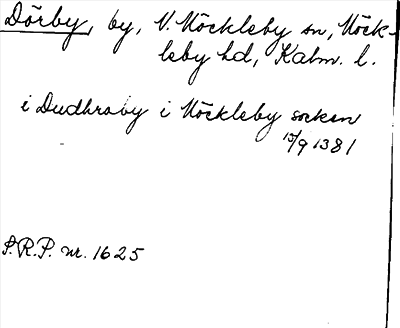 Dörby, by, N. Möckleby sn, Möck-
leby hd, Kalm. l.
i Dudhraby i Möckleby socken
15/9 1381
S.R.P. nr. 1625